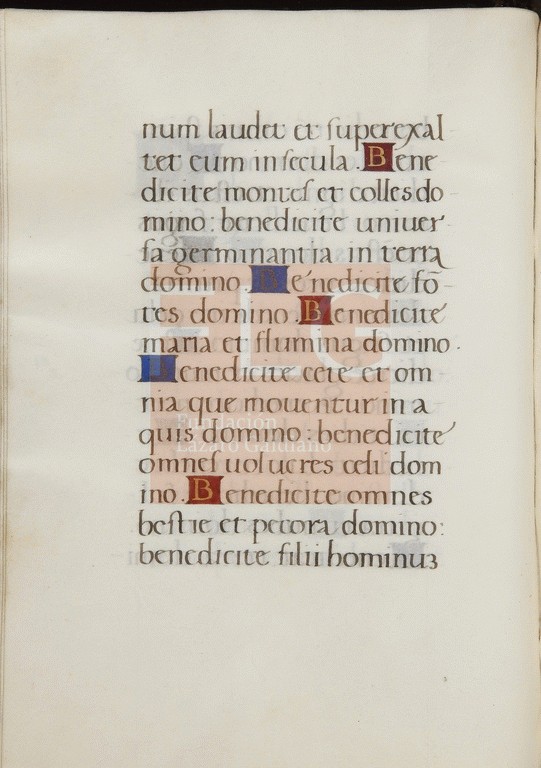 num laudet et superexal
tet eum in secula. Bene
dicite montes et colles do
mino: benedicite univer
sa germinantia in terra
domino. Benedicite fō
tes domino. Benedicite
maria et flumina domino.
Benedicite cete et om
nia que moventur in a
quis domino: benedicite
omnes uolucres celi dom
ino. Benedicite omnes
bestie et pecora domino:
benedicite filii hominuʒ
FLG
Fundación
Lázaro Galdiano